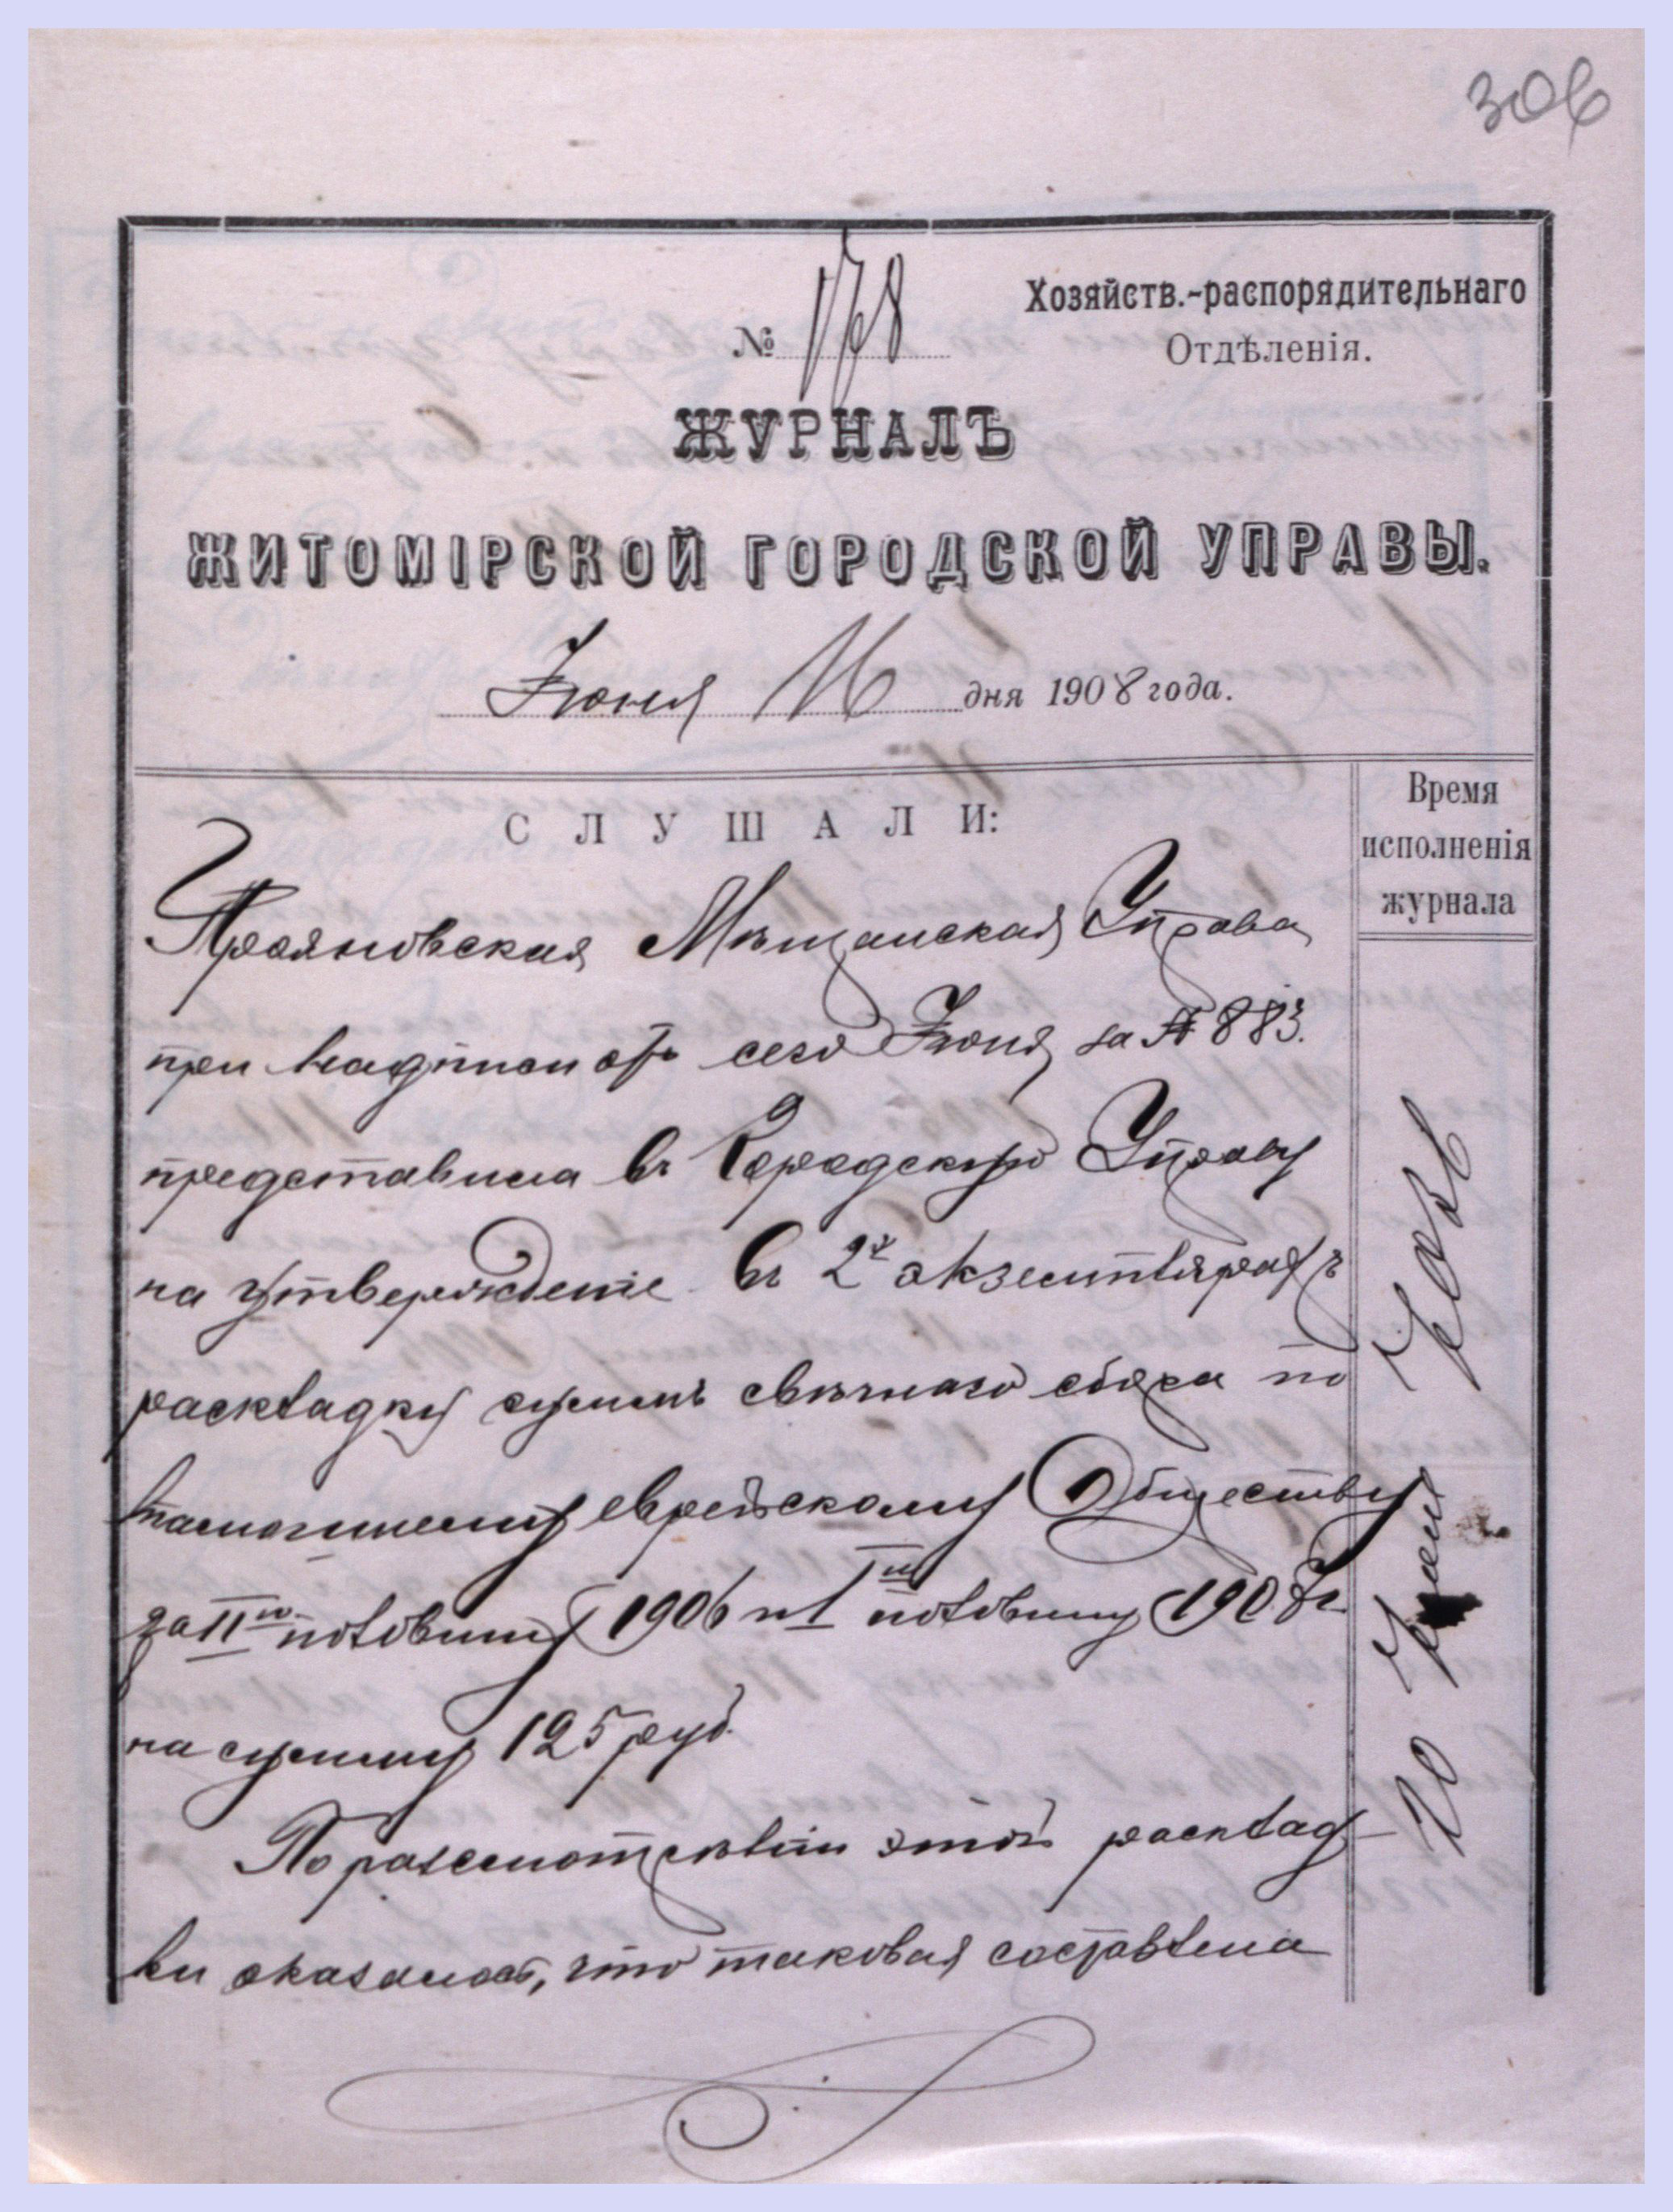 306
№ 178
Хозяйств.-распорядительнаго
Отдѣленія.
ЖУРНАЛЪ
ЖИТОМІРСКОЙ ГОРОДСКОЙ УПРАВЫ.
Іюня 16 дня 1908 года.
СЛУШАЛИ:
Время
исполненія
журнала
Трояновская Мѣщанская Управа
при надписи отъ сего Іюня за № 883.
представила въ Городскую Управу
на утвержденіе въ 2х экземплярахъ
раскладку суммъ свѣчнаго сбора по
тамошнему еврейскому Обществу
за II ю половину 1906 и I ю половину 1908 г.
на сумму 125 руб.
По разсмотрѣніи этой расклад-
ки оказалось, что таковая составлена
20